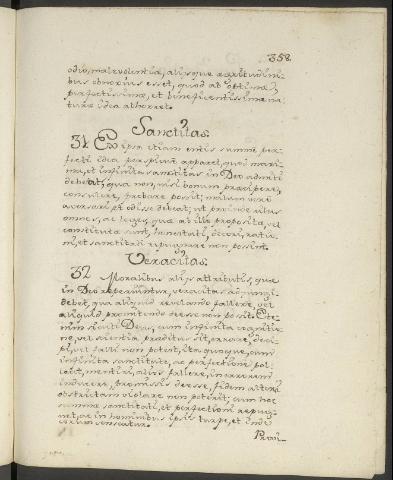 358.
odio, malevolentia, aliisque aegritudini-
bus obnoxius esset, quod ab optimae,
perfectissimae, et beneficentissimae na-
turae idea abhorret.
Sanctitas.
31 Ex ipsa etiam entis summe per-
fecti idea perspicue apparet, quod maxi-
ma, et infinita sanctitas in Deo admitti
debeat; qua non, nisi bonum praecipere,
consulere, probare possit; malum vero
aversari et odisse debeat; ut proinde illius
omnes, ac leges, quae ab illo propositae, vel
constitutae sunt, honestati, decori, ratio-
ni, et sanctitati repugnare non possint.
Veracitas.
32 Moralibus aliis attributis, quae
in Deo reperiuntur, veracitas adjungi
debet, qua aliquid revelando fallere, vel
aliquid promittendo deesse non possit. Ete-
nim sicuti Deus, cum infinita cognitio-
ne, vel scientia praeditus sit, errare, deci-
pi, vel falli non potest, ita quoque, cum
infinita sanctitate, ac perfectione pol-
leat, mentiri, alios fallere, in errorem
inducere, promissis deesse, fidem alteri
obstrictam violare non poterit; cum hoc
summae sanctitati, et perfectioni repug-
net, ac in hominibus ipsis turpe, et inde-
corum censeatur.